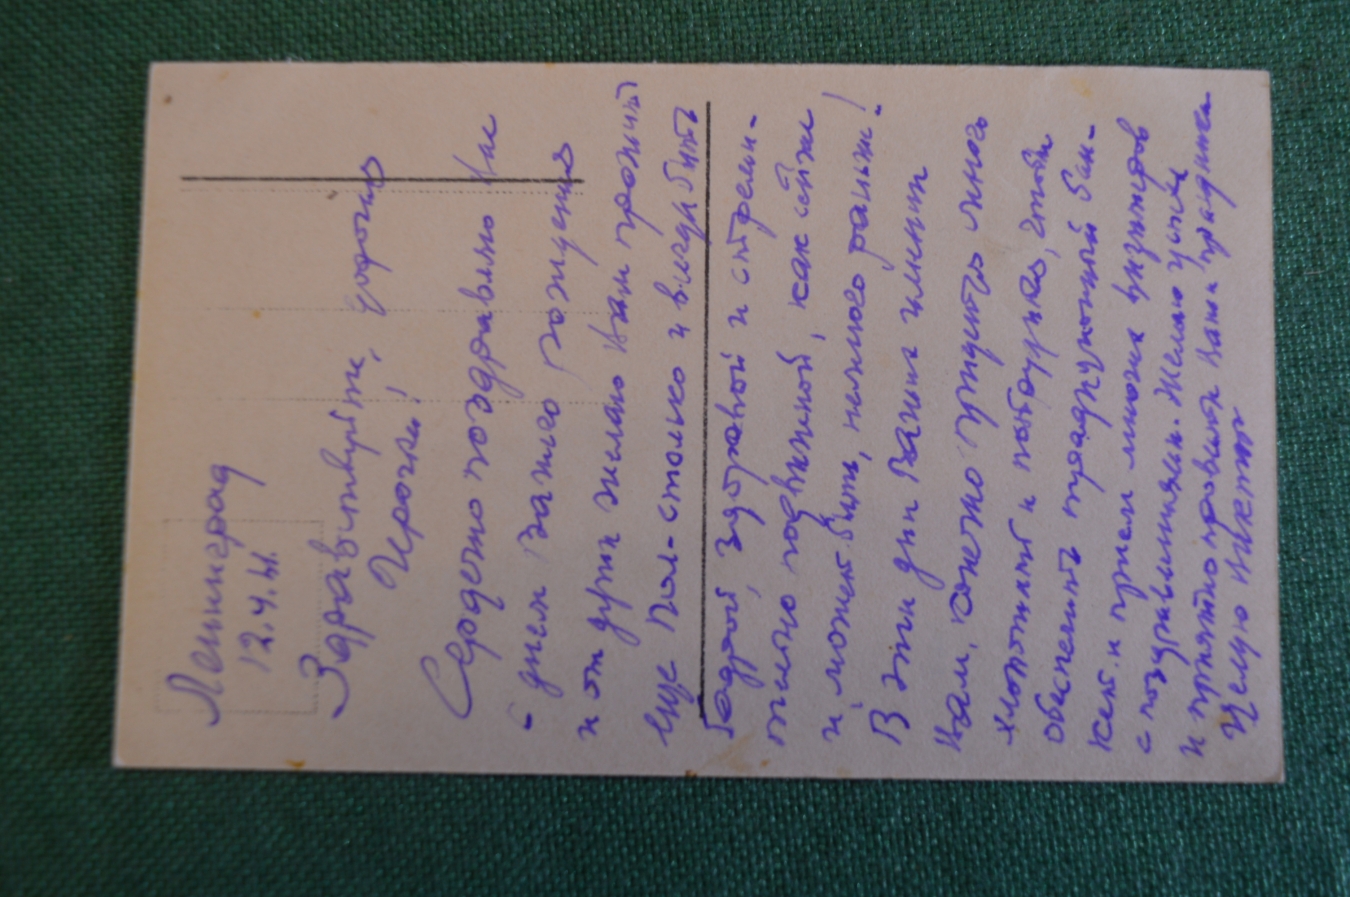 Ленинград
12.4.41.
Здравствуйте, дорогие
Сердечно поздравляю Вас
с днем Вашего рождения
и от души желаю Вам прожить
еще пол-столько и всегда быть
бодрой, здоровой и стреми-
тельно подвижной, как сейчас
и может быть, немного раньше!
В эти дни Ваших именин
Вам, конечно придется много
хлопотать и подумать, чтобы
обеспечить праздничный бан-
кет и прием многих визитеров
с поздравлениями. Желаю успеха
и приятно провести Ваши праздники
Целую Виктор